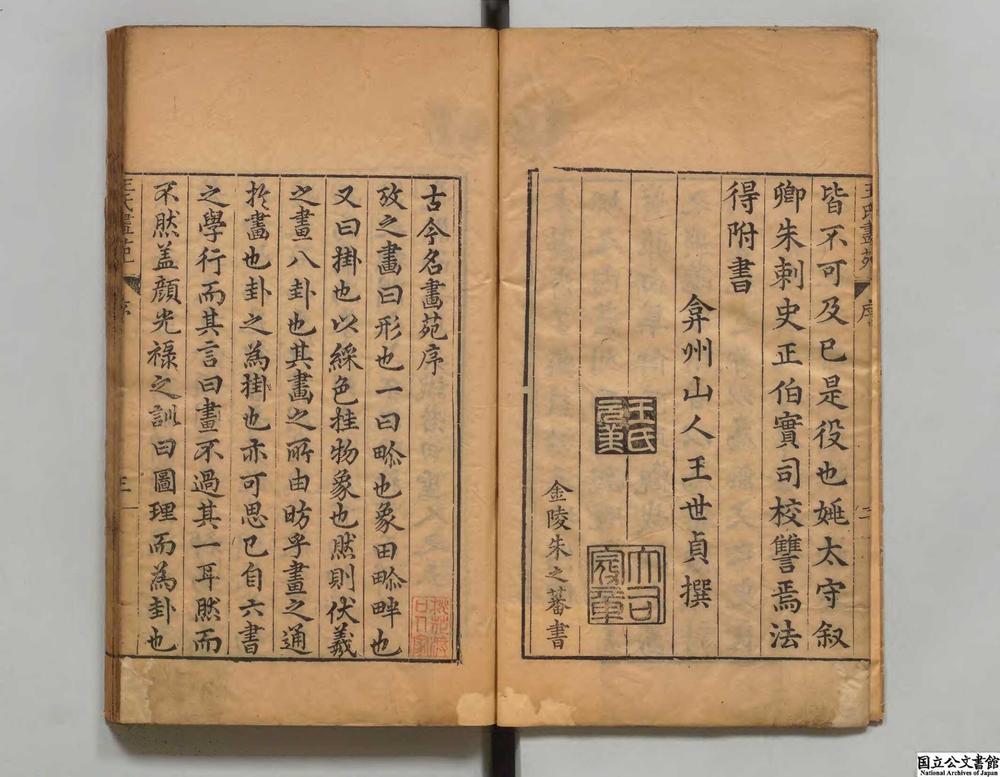 皆不可及已是役也姚太守叙
卿朱刺史正伯實司校讐焉法
得附書
弇州山人王世貞撰
王氏元美
大司寇章
金陵朱之蕃書
王氏畫苑
序
二
古今名畫苑序
攷之畫曰形也一曰畛也象田畛畔也
又曰掛也以綵色挂物象也然則伏羲
之畫八卦也其畫之所由昉乎畫之通
扵畫也卦之為掛也亦可思已自六書
之學行而其言曰畫不過其一耳然而
不然盖顔光祿之訓曰圖理而為卦也
王氏畫苑
序
三
国立公文書館
National Archives of Japan